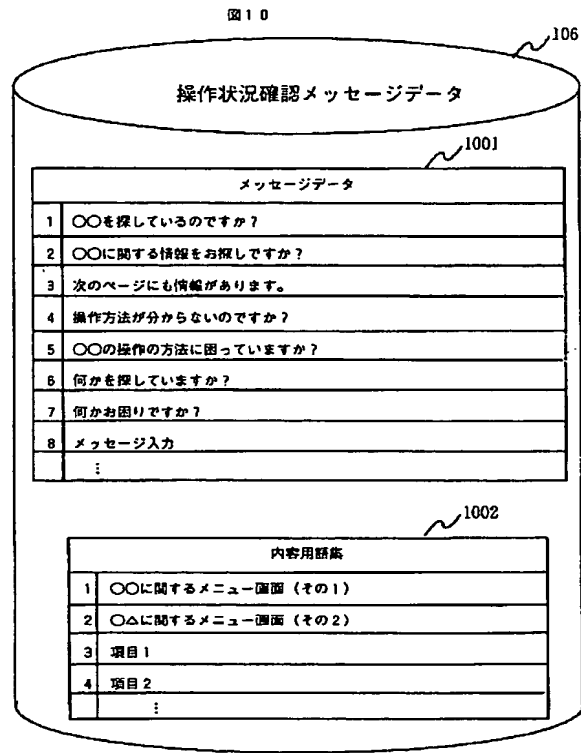 図10
106
操作状況確認メッセージデータ
1001
メッセージデータ
1 〇〇を探しているのですか？
2 〇〇に関する情報をお探しですか？
3 次のページにも情報があります。
4 操作方法が分からないのですか？
5 〇〇の操作の方法に困っていますか？
6 何かを探していますか？
7 何かお困りですか？
8 メッセージ入力
⋮
1002
内容用語集
1 〇〇に関するメニュー画面（その1）
2 〇△に関するメニュー画面（その2）
3 項目1
4 項目2
⋮